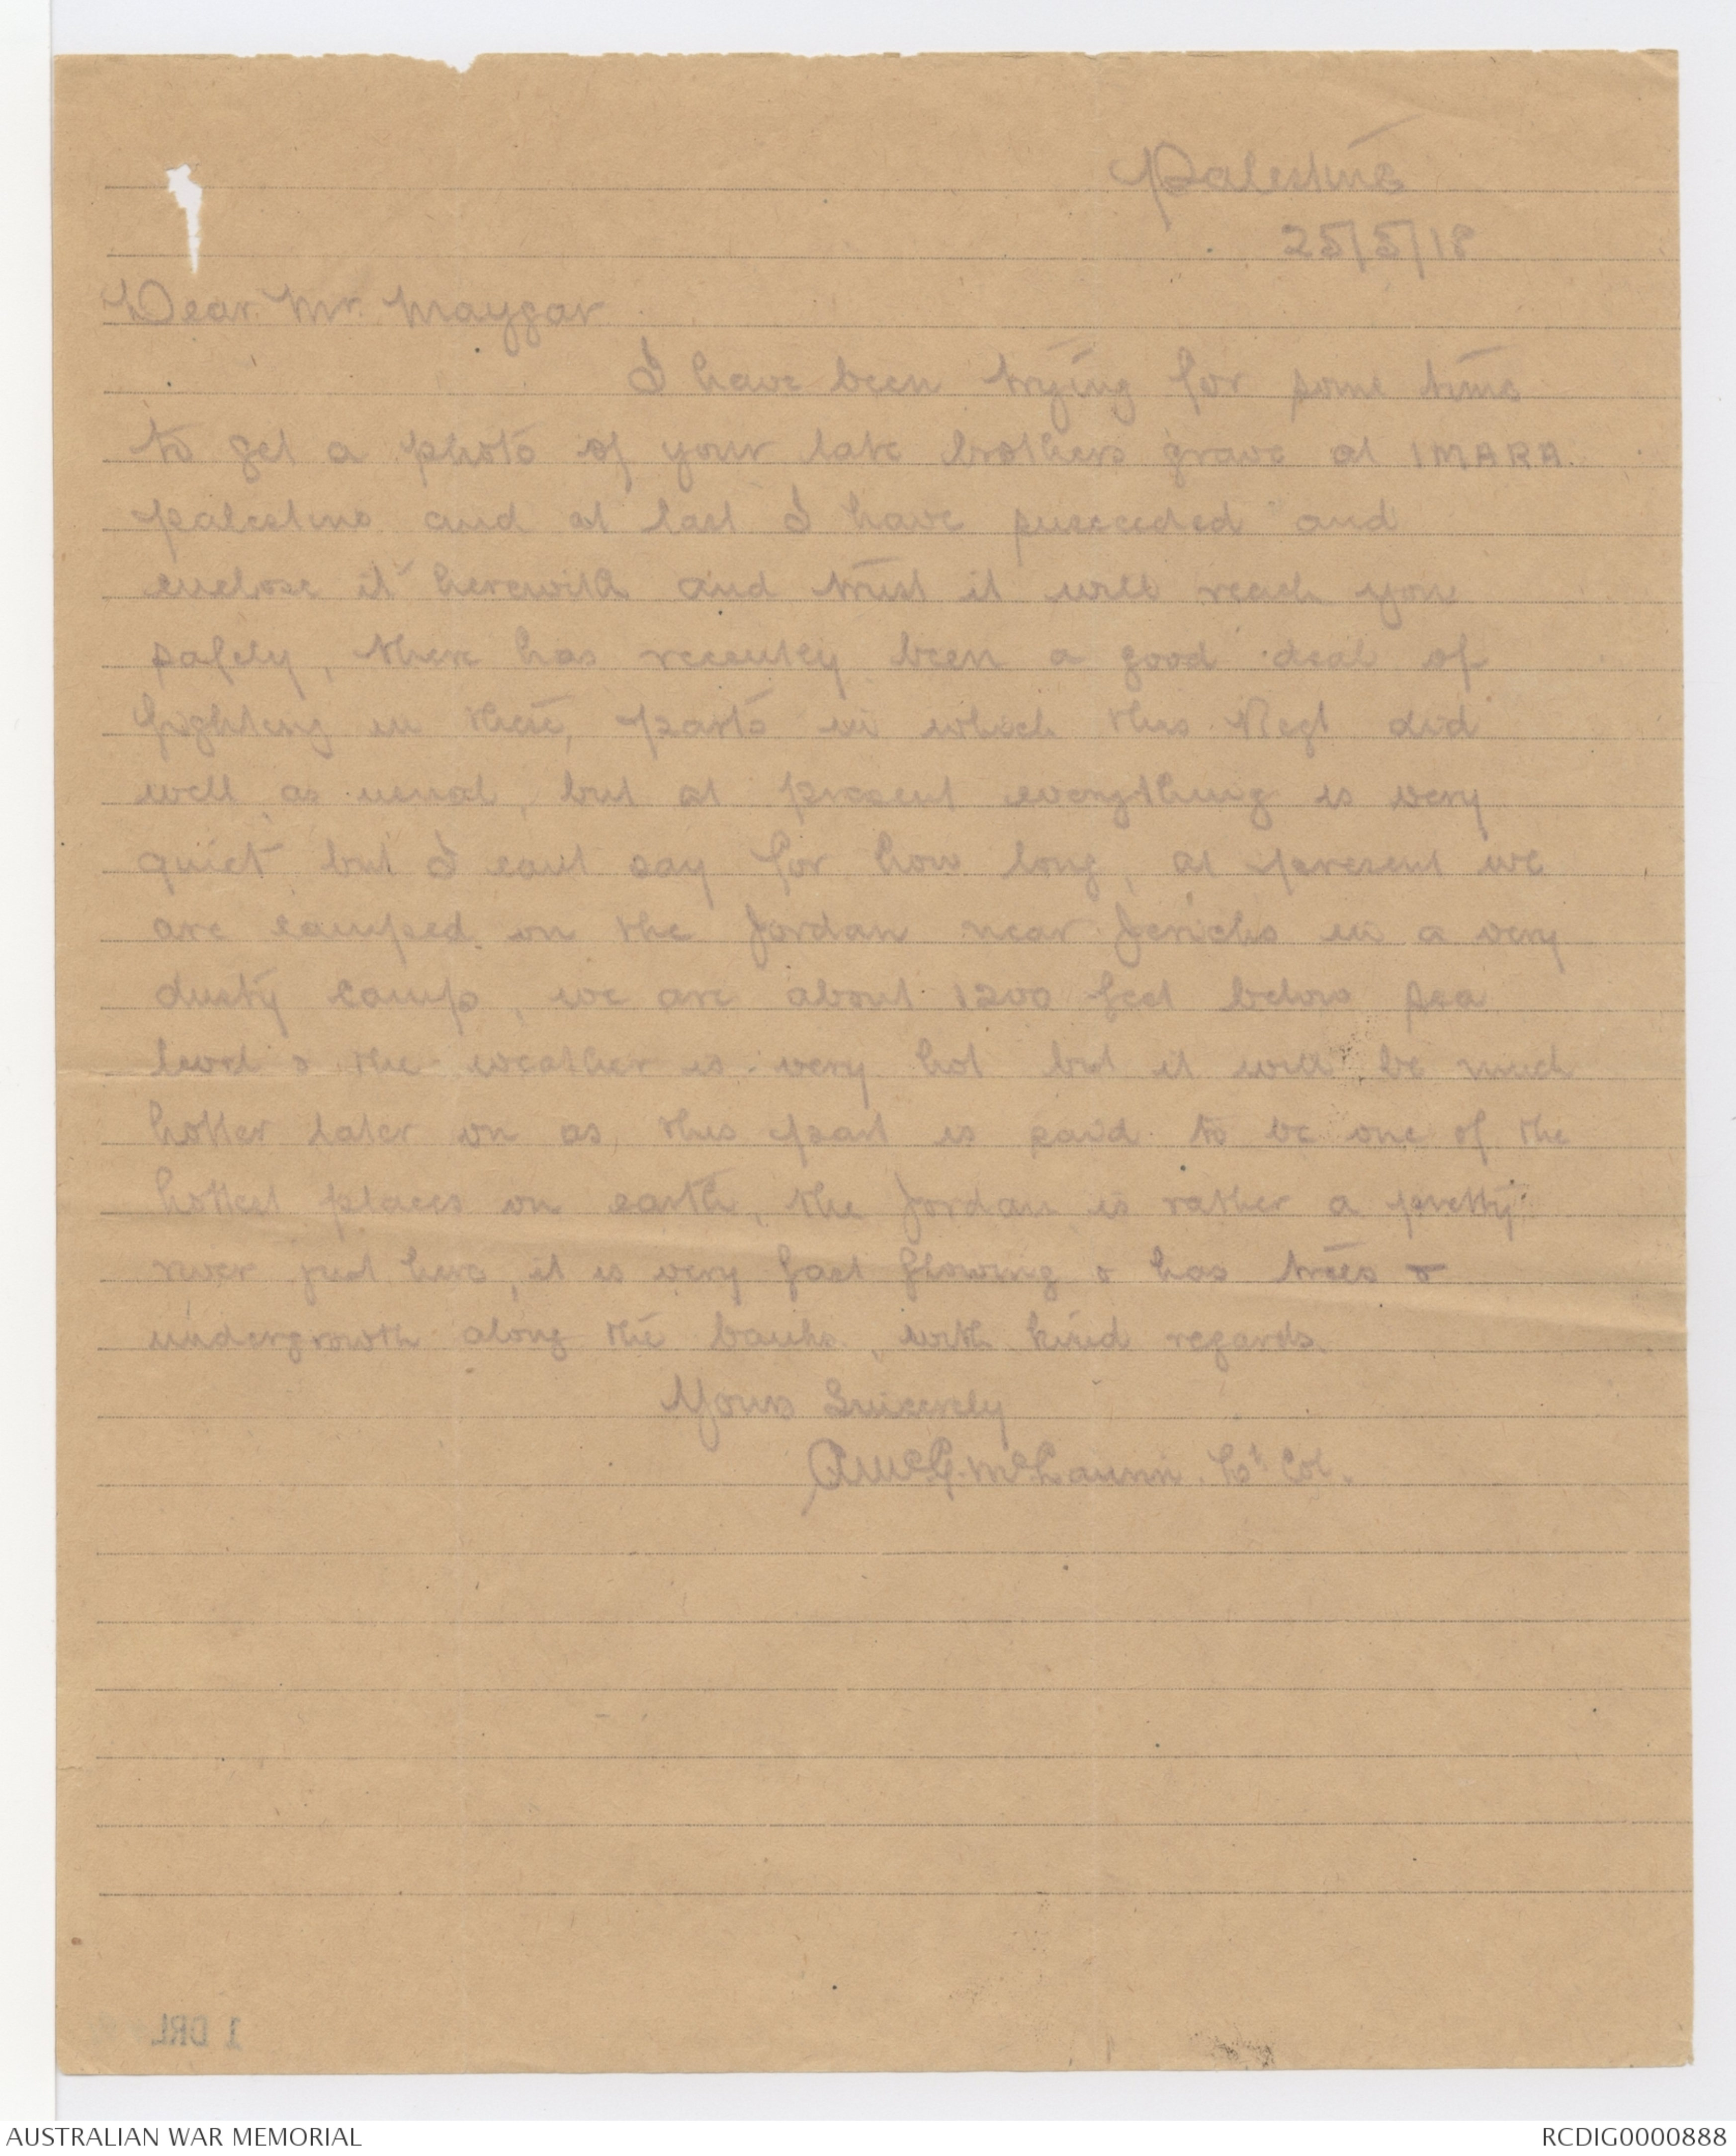 Palestine
25/5/18
Dear Mr. Maygar
I have been trying for some time
to get a photo of your late brothers grave at IMARA.
Palestine and at last I have succeeded and
enclose it herewith and trust it will reach you
safely, there has recently been a good deal of
fighting in these parts in which this Regt did
well as usual, but at present everything is very
quiet but I cant say for how long, at present we
are camped on the Jordan near Jericho in a very
dusty camp, we are about 1200 feet below sea
level & the weather is very hot but it will be much
hotter later on as this part is said to be one of the
hottest places on earth, the Jordan is rather a pretty
river just here, it is very fast flowing & has trees &
undergrowth along the banks, with kind regards
Yours Sincerely
Lt Col.
1 DRL
AUSTRALIAN WAR MEMORIAL
RCDIG0000888